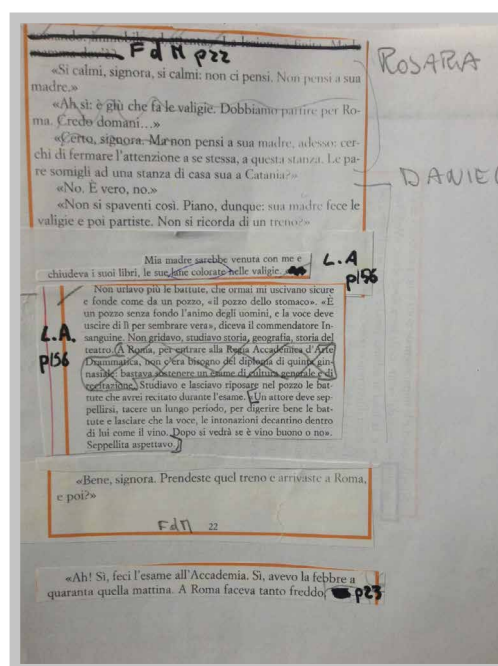 mamma dov'è?» FdM p22
ROSARIA
«Si calmi, signora, si calmi: non ci pensi. Non pensi a sua
madre.»
«Ah sì: è giù che fa le valigie. Dobbiamo partire per Ro-
ma. Credo domani...»
«Certo, signora. Ma non pensi a sua madre, adesso: cer-
chi di fermare l'attenzione a se stessa, a questa stanza. Le pa-
re somigli ad una stanza di casa sua a Catania?»
DANIEL
«No. È vero, no.»
«Non si spaventi così. Piano, dunque: sua madre fece le
valigie e poi partiste. Non si ricorda di un treno?»
Mia madre sarebbe venuta con me e
chiudeva i suoi libri, le sue lane colorate nelle valigie.
L.A
p156
Non urlavo più le battute, che ormai mi uscivano sicure
e fonde come da un pozzo, «il pozzo dello stomaco». «È
un pozzo senza fondo l'animo degli uomini, e la voce deve
uscire di lì per sembrare vera», diceva il commendatore In-
sanguine. Non gridavo, studiavo storia, geografia, storia del
teatro. A Roma, per entrare alla Regia Accademica d'Arte
Drammatica, non c'era bisogno del diploma di quinta gin-
nasiale: bastava sostenere un esame di cultura generale e di
recitazione. Studiavo e lasciavo riposare nel pozzo le bat-
tute che avrei recitato durante l'esame. «Un attore deve sep-
pellirsi, tacere un lungo periodo, per digerire bene le bat-
tute e lasciare che la voce, le intonazioni decantino dentro
di lui come il vino. Dopo si vedrà se è vino buono o no».
Seppellita aspettavo.
L.A.
p156
«Bene, signora. Prendeste quel treno e arrivaste a Roma,
e poi?»
FdM 22
«Ah! Sì, feci l'esame all'Accademia. Sì, avevo la febbre a
quaranta quella mattina. A Roma faceva tanto freddo, p23